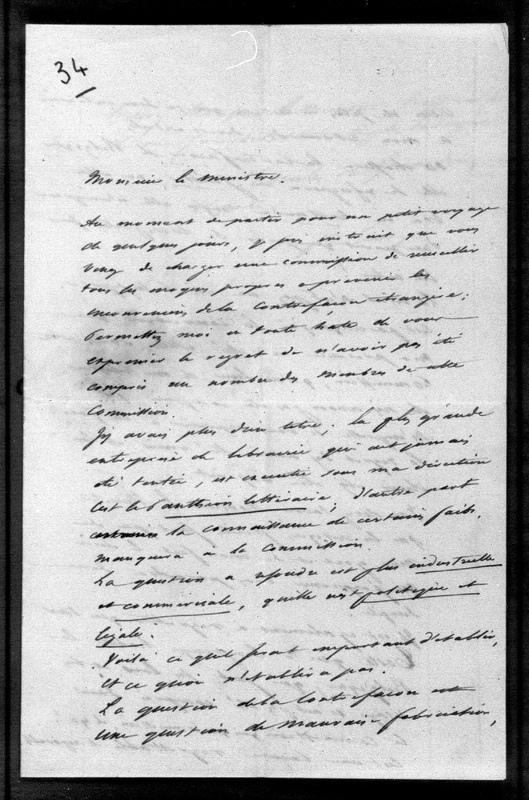 34
Monsieur le ministre.
Au moment de partir pour un petit voyage
de quelques jours, je suis instruit que vous
venez de charger une commission de recueillir
tous les moyens propres a prevenir les
inconveniens de la contrefaçon étrangère;
Permettez moi en toute hâte de vous
exprimer le regret de n'avoir pas été
compris au nombre des membres de cette
Commission.
J'y avais plus d'un titre; la plus grande
entreprise de librairie qui ait jamais
été tentée, est executée sous ma direction
C'est le Panthéon littéraire, d'autre part
la connaissance de certains faits,
manquera à la Commission.
La question a resoudre est plus industrielle
et commerciale, qu'elle n'est politique et
légale.
Voilà ce qu'il serait important d'établir,
et ce qu'on n'établira pas.
La question de la Contrefaçon est
une question de mauvaise fabrication,